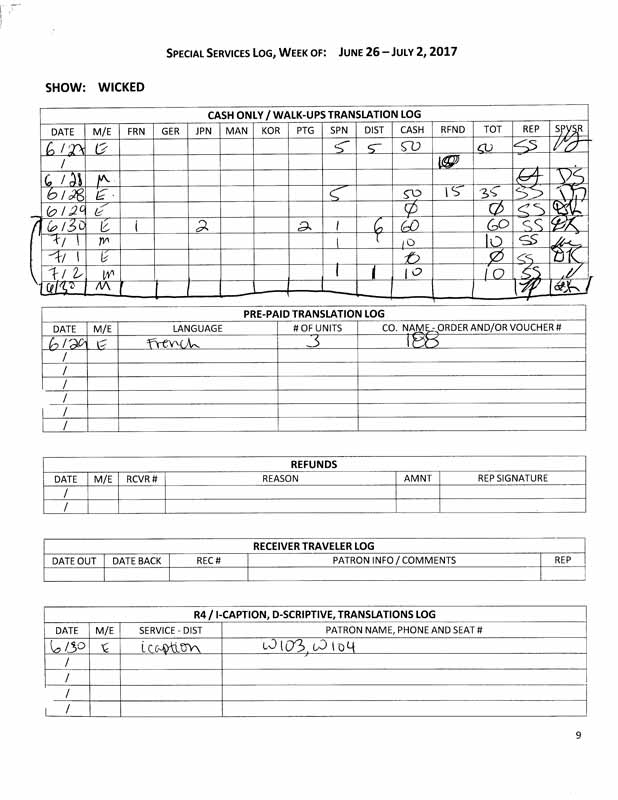 SPECIAL SERVICES LOG, WEEK OF: JUNE 26 – JULY 2, 2017
SHOW: WICKED
CASH ONLY / WALK-UPS TRANSLATION LOG
DATE M/E FRN GER JPN MAN KOR PTG SPN DIST CASH RFND TOT REP SPVSR
6/27 E 5 5 50 50 SS
/
6/28 M DS
6/28 E. 5 50 15 35 SS
6/29 E Ø Ø SS
6/30 E 1 2 2 1 6 60 60 SS BK
7/1 m 1 10 10 SS
7/1 E Ø Ø SS BK
7/2 m 1 1 10 10 SS
6/30 M
PRE-PAID TRANSLATION LOG
DATE M/E LANGUAGE # OF UNITS CO. NAME - ORDER AND/OR VOUCHER #
6/29 E French 3 188
/
/
/
/
/
/
REFUNDS
DATE M/E RCVR # REASON AMNT REP SIGNATURE
/
/
RECEIVER TRAVELER LOG
DATE OUT DATE BACK REC # PATRON INFO / COMMENTS REP
R4 / I-CAPTION, D-SCRIPTIVE, TRANSLATIONS LOG
DATE M/E SERVICE - DIST PATRON NAME, PHONE AND SEAT #
6/30 E icaption W103, W104
/
/
/
/
9